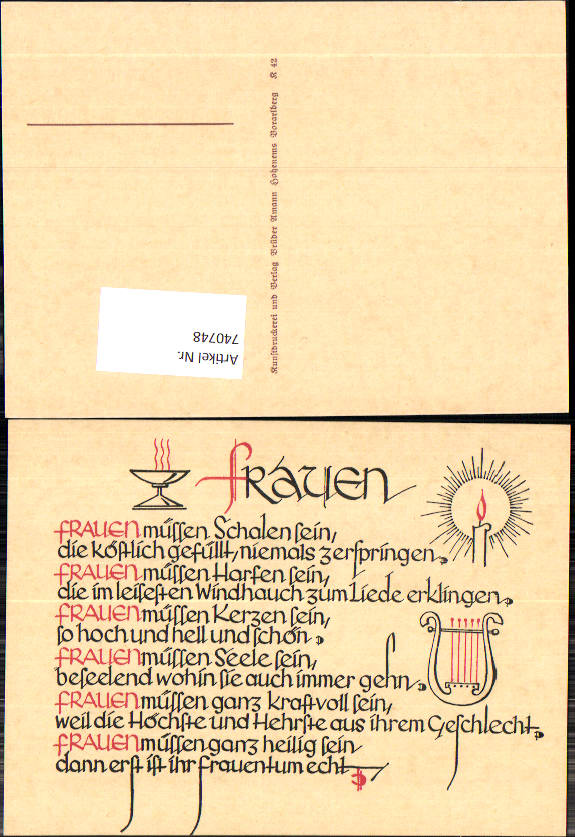 Kunstdruckerei und Verlag Brüder Amann Hohenems Vorarlberg K 42
Artikel Nr.
740748
FRAUEN
FRAUEN müssen Schalen sein,
die köstlich gefüllt, niemals zerspringen.
FRAUEN müssen Harfen sein,
die im leisesten Windhauch zum Liede erklingen.
FRAUEN müssen Kerzen sein,
so hoch und hell und schön.
FRAUEN müssen Seele sein,
beseelend wohin sie auch immer gehn.
FRAUEN müssen ganz kraftvoll sein,
weil die Höchste und Hehrste aus ihrem Geschlecht.
FRAUEN müssen ganz heilig sein
dann erst ist ihr Frauentum echt